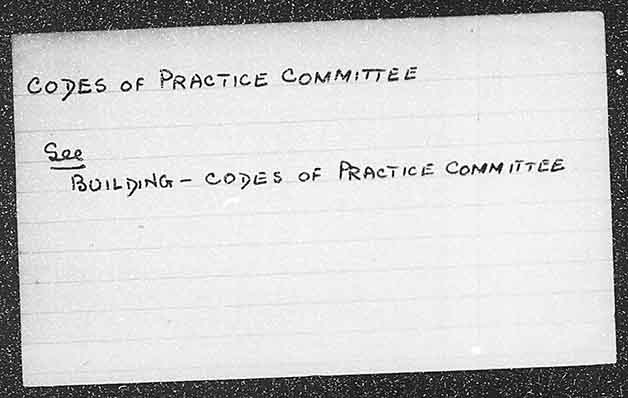 CODES OF PRACTICE COMMITTEE
See
BUILDING - CODES OF PRACTICE COMMITTEE